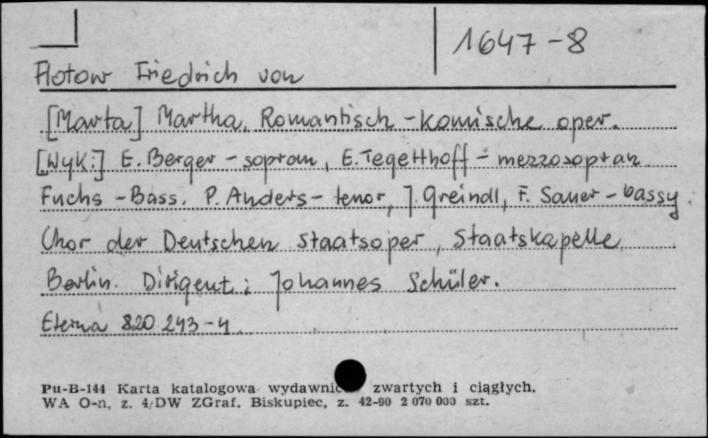 1647-8
Flotow Friedrich von
[Marta] Martha. Romantisch-komische oper.
[Wyk:] E. Berger - sopran, E. Tegetthoff - mezzosopran
Fuchs - Bass. P. Anders - tenor, J. Greindl, F. Sauer - bassy.
Chor der Deutschen Staatsoper, Staatskapelle
Berlin. Dirigent: Johannes Schüler.
Eterna 820 243-4
Pu-B-144 Karta katalogowa zwartych i ciągłych.
WA O-n, z. 4/DW ZGraf. Biskupiec, z. 42-90 2 070 000 szt.